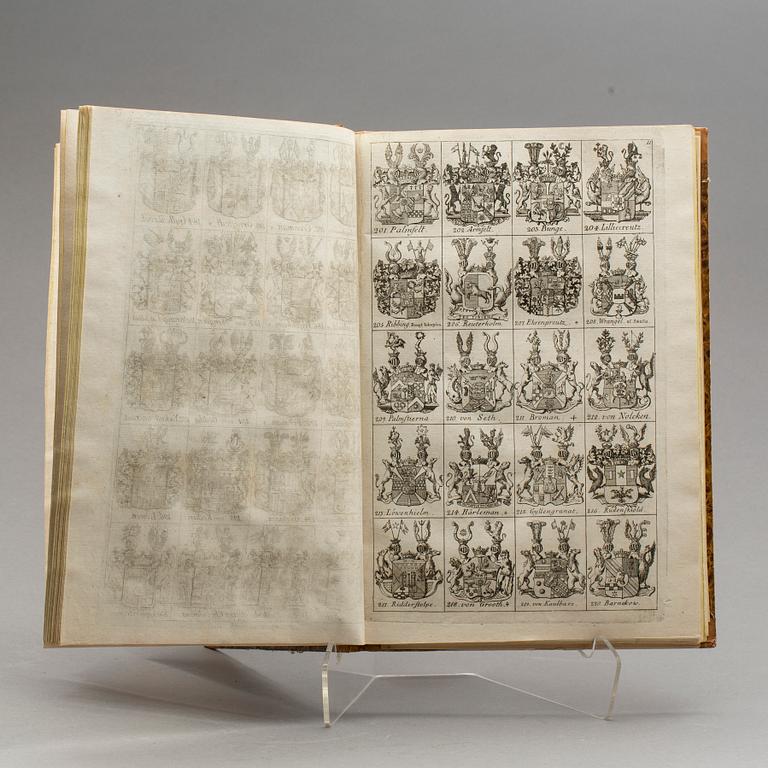 11
201. Palmfelt. 202. Armfelt. 203. Bunge. 204. Lilliecreutz.
205. Ribbing 206. Reuterholm. 207. Ehrenpreutz. + 208. Wrangel.
209. Palmstierna 210. von Seth. 211. Broman + 212. von Nolcken.
213. Löwenhielm. 214. Hårleman. + 215. Gyllengranat. 216. Rudenskiöld
217. Ridderstolpe. 218. von Grooth. + 219. von Kaulbars. 220. Barnekow.